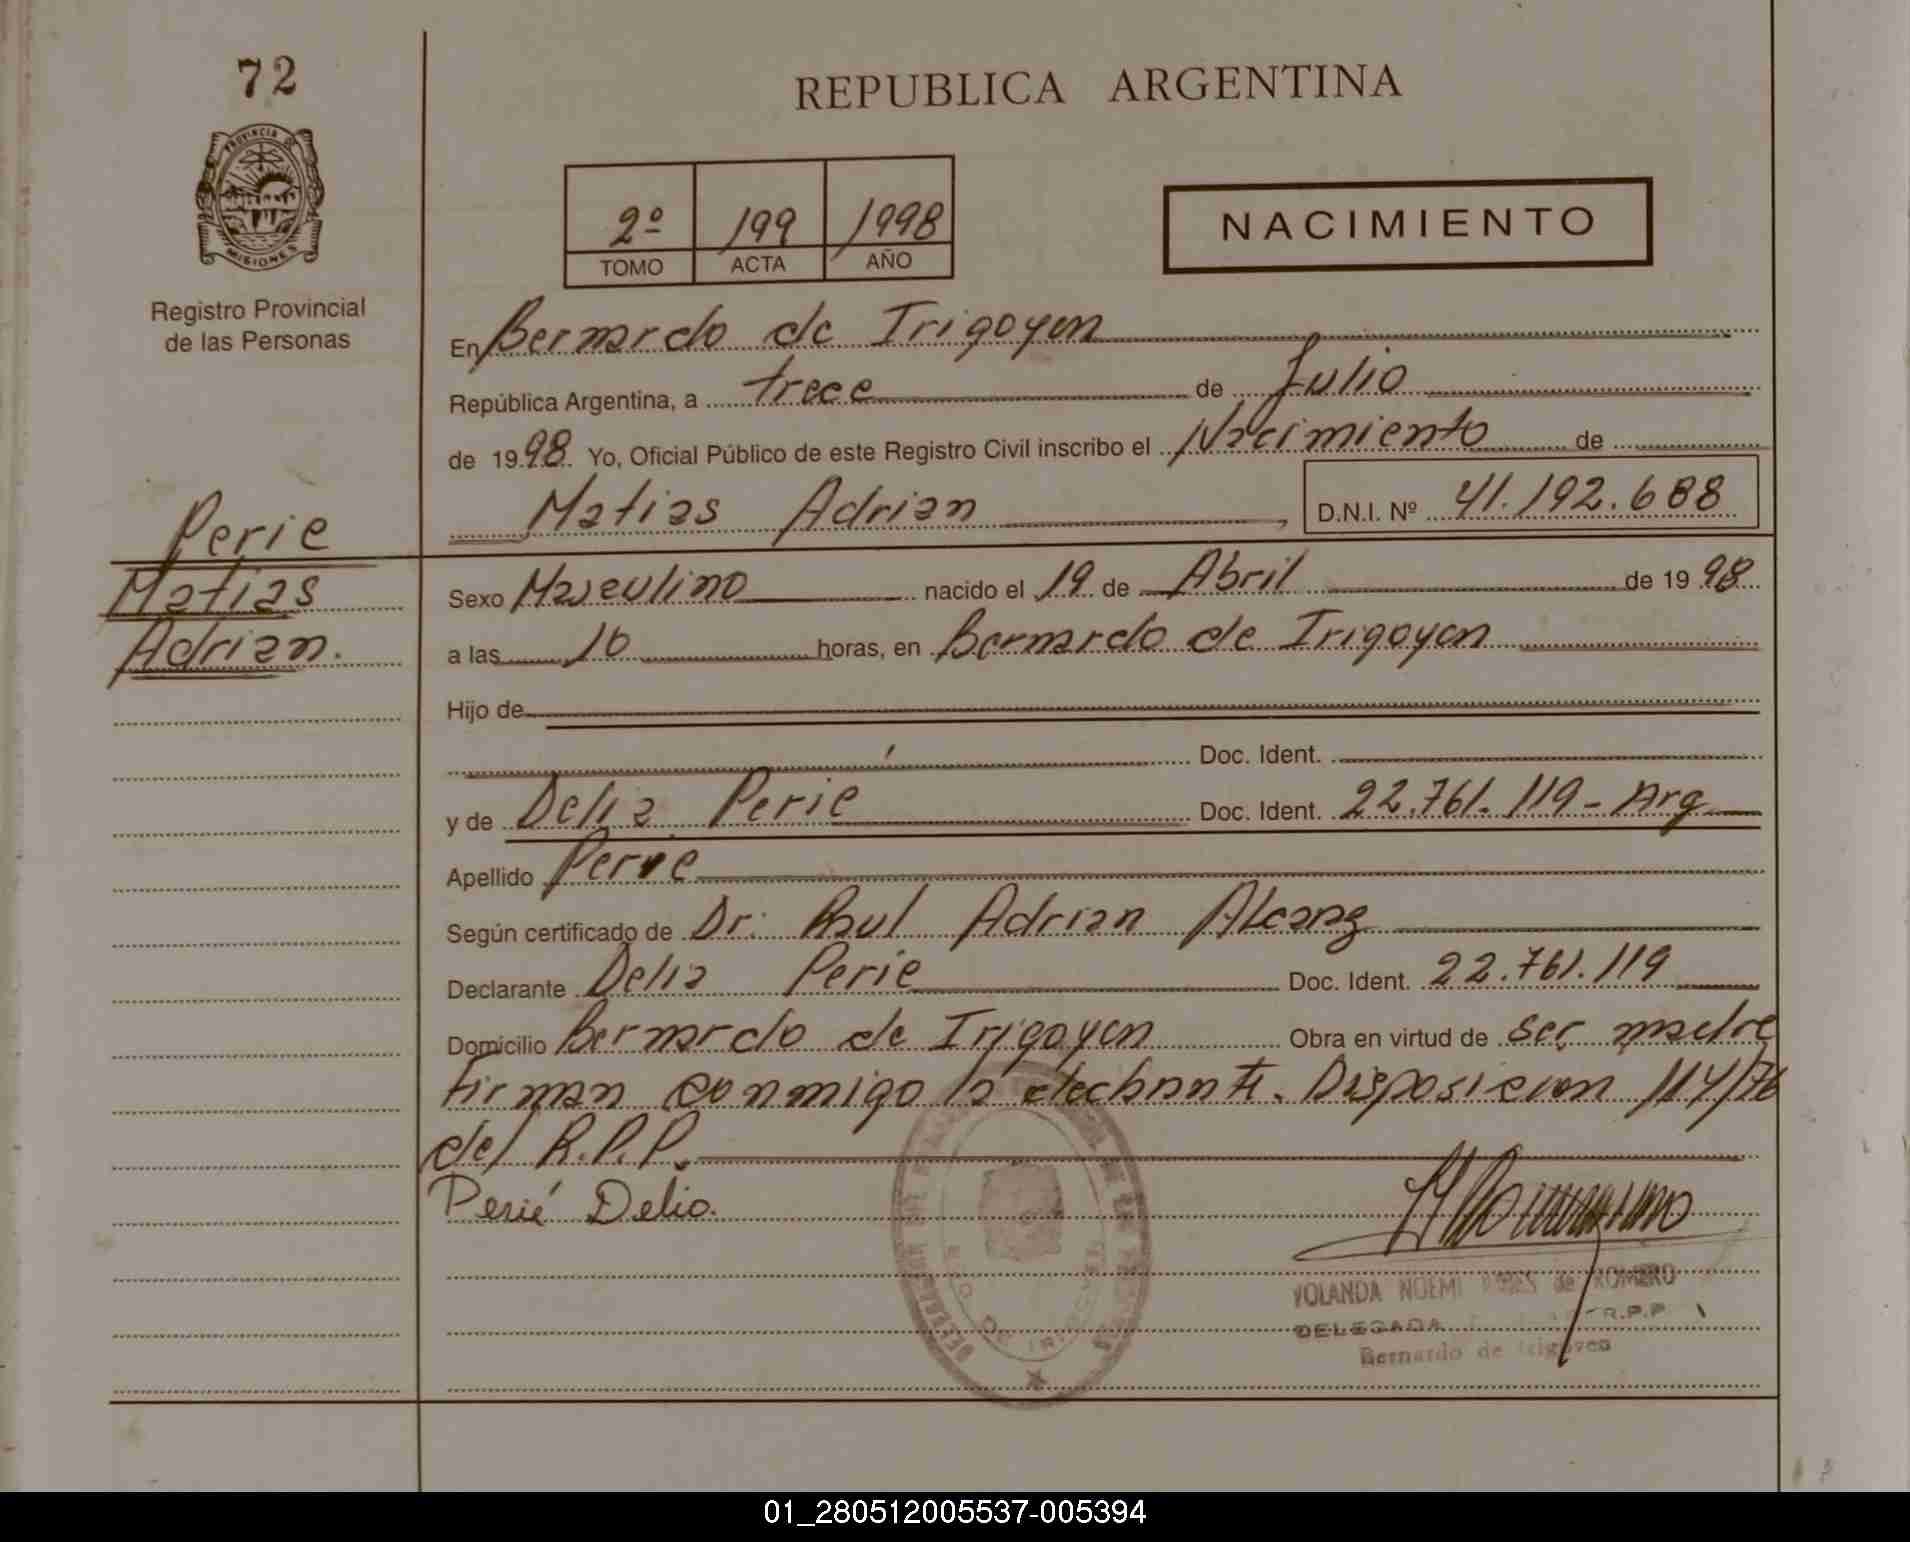 72
REPUBLICA ARGENTINA
PROVINCIA DE
MISIONES
2º 199 1998
TOMO ACTA AÑO
NACIMIENTO
Registro Provincial
de las Personas
En Bernardo de Irigoyen
República Argentina, a trece de Julio
de 1998 Yo, Oficial Público de este Registro Civil inscribo el Nacimiento de
Matias Adrian D.N.I. Nº 41.192.688
Perie
Matias
Adrian.
Sexo Masculino nacido el 19 de Abril de 1998
a las 10 horas, en Bernardo de Irigoyen
Hijo de
Doc. Ident.
y de Delia Perie Doc. Ident. 22.761.119 - Arg
Apellido Perie
Según certificado de Dr. Raul Adrian Alcaraz
Declarante Delia Perie Doc. Ident. 22.761.119
Domicilio Bernardo de Irigoyen Obra en virtud de ser madre
Firman conmigo la Disposicion 114/76
del R.P.P.
Perié Delia.
YOLANDA NOEMI de ROMERO
DELEGADA R.P.P
Bernardo de Irigoyen
01_280512005537-005394